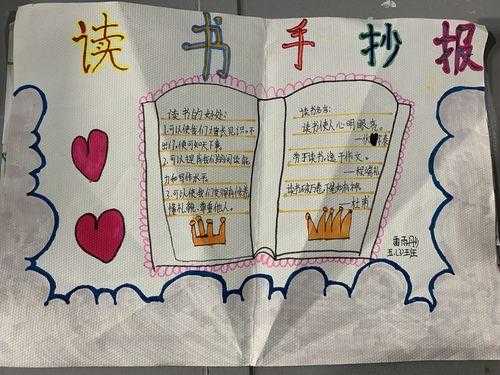 读书手抄报
读书的好处:
1.可以使我们增长见识。不
出门,便可知天下事。
2.可以提高我们的阅读能
力和写作水平。
3.可以使我们变得有修养
懂礼貌,尊重他人。
读书名言:
读书使人心明眼亮。
——伏尔泰
劳于读书,逸于作文。
——程端礼
读书破万卷,下笔如有神。
——杜甫
雷雨
五(3)班